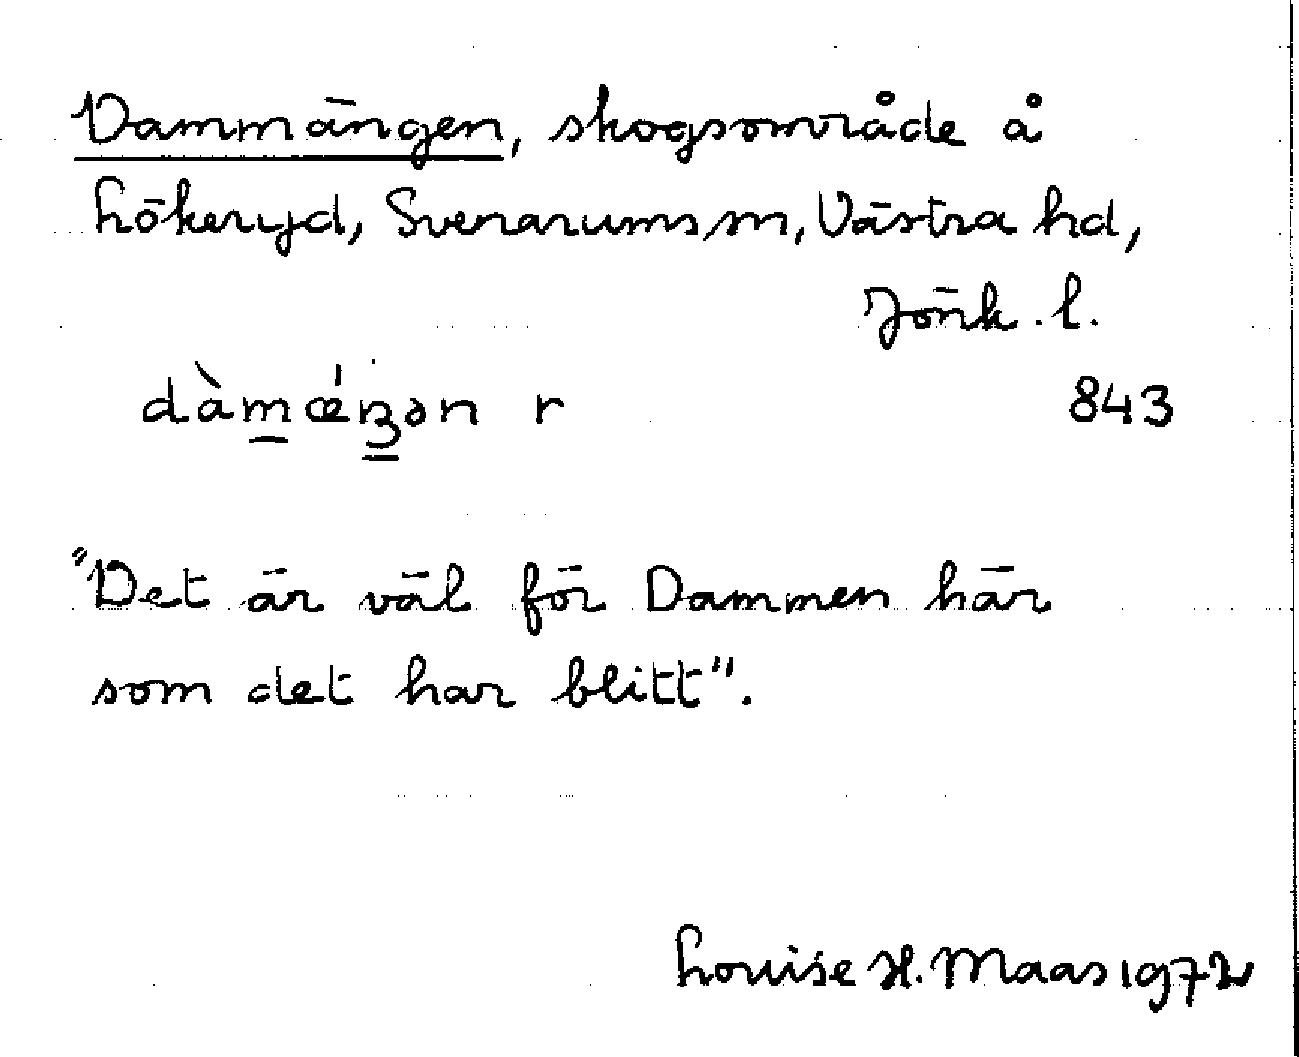 Dammängen, skogsområde å
Lökeryd, Svenarums sn, Västra hd,
Jönk. l.
dàm̲ǽŋ̳ən r 843
"Det är väl för Dammen här
som det har blitt".
Louise H. Maas 1972